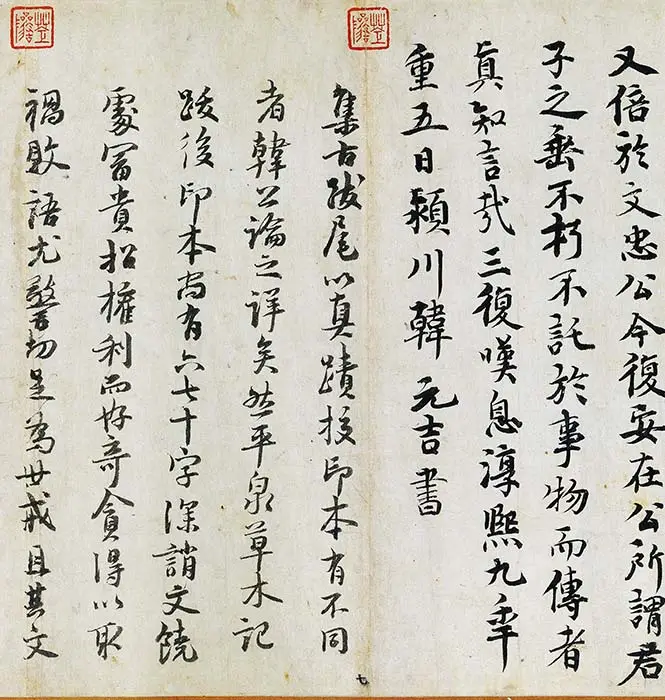 又倍於文忠公今復安在公所謂君
子之垂不朽不託於事物而傳者
眞知言哉三復嘆息淳熙九年
重五日潁川韓元吉書
集古跋尾以真蹟校印本有不同
者韓公論之詳矣然平泉草木記
跋後印本尚有六七十字深誚文饒
處冨貴招權利而好奇貪得以取
禍敗語尤警切足為世戒且其文